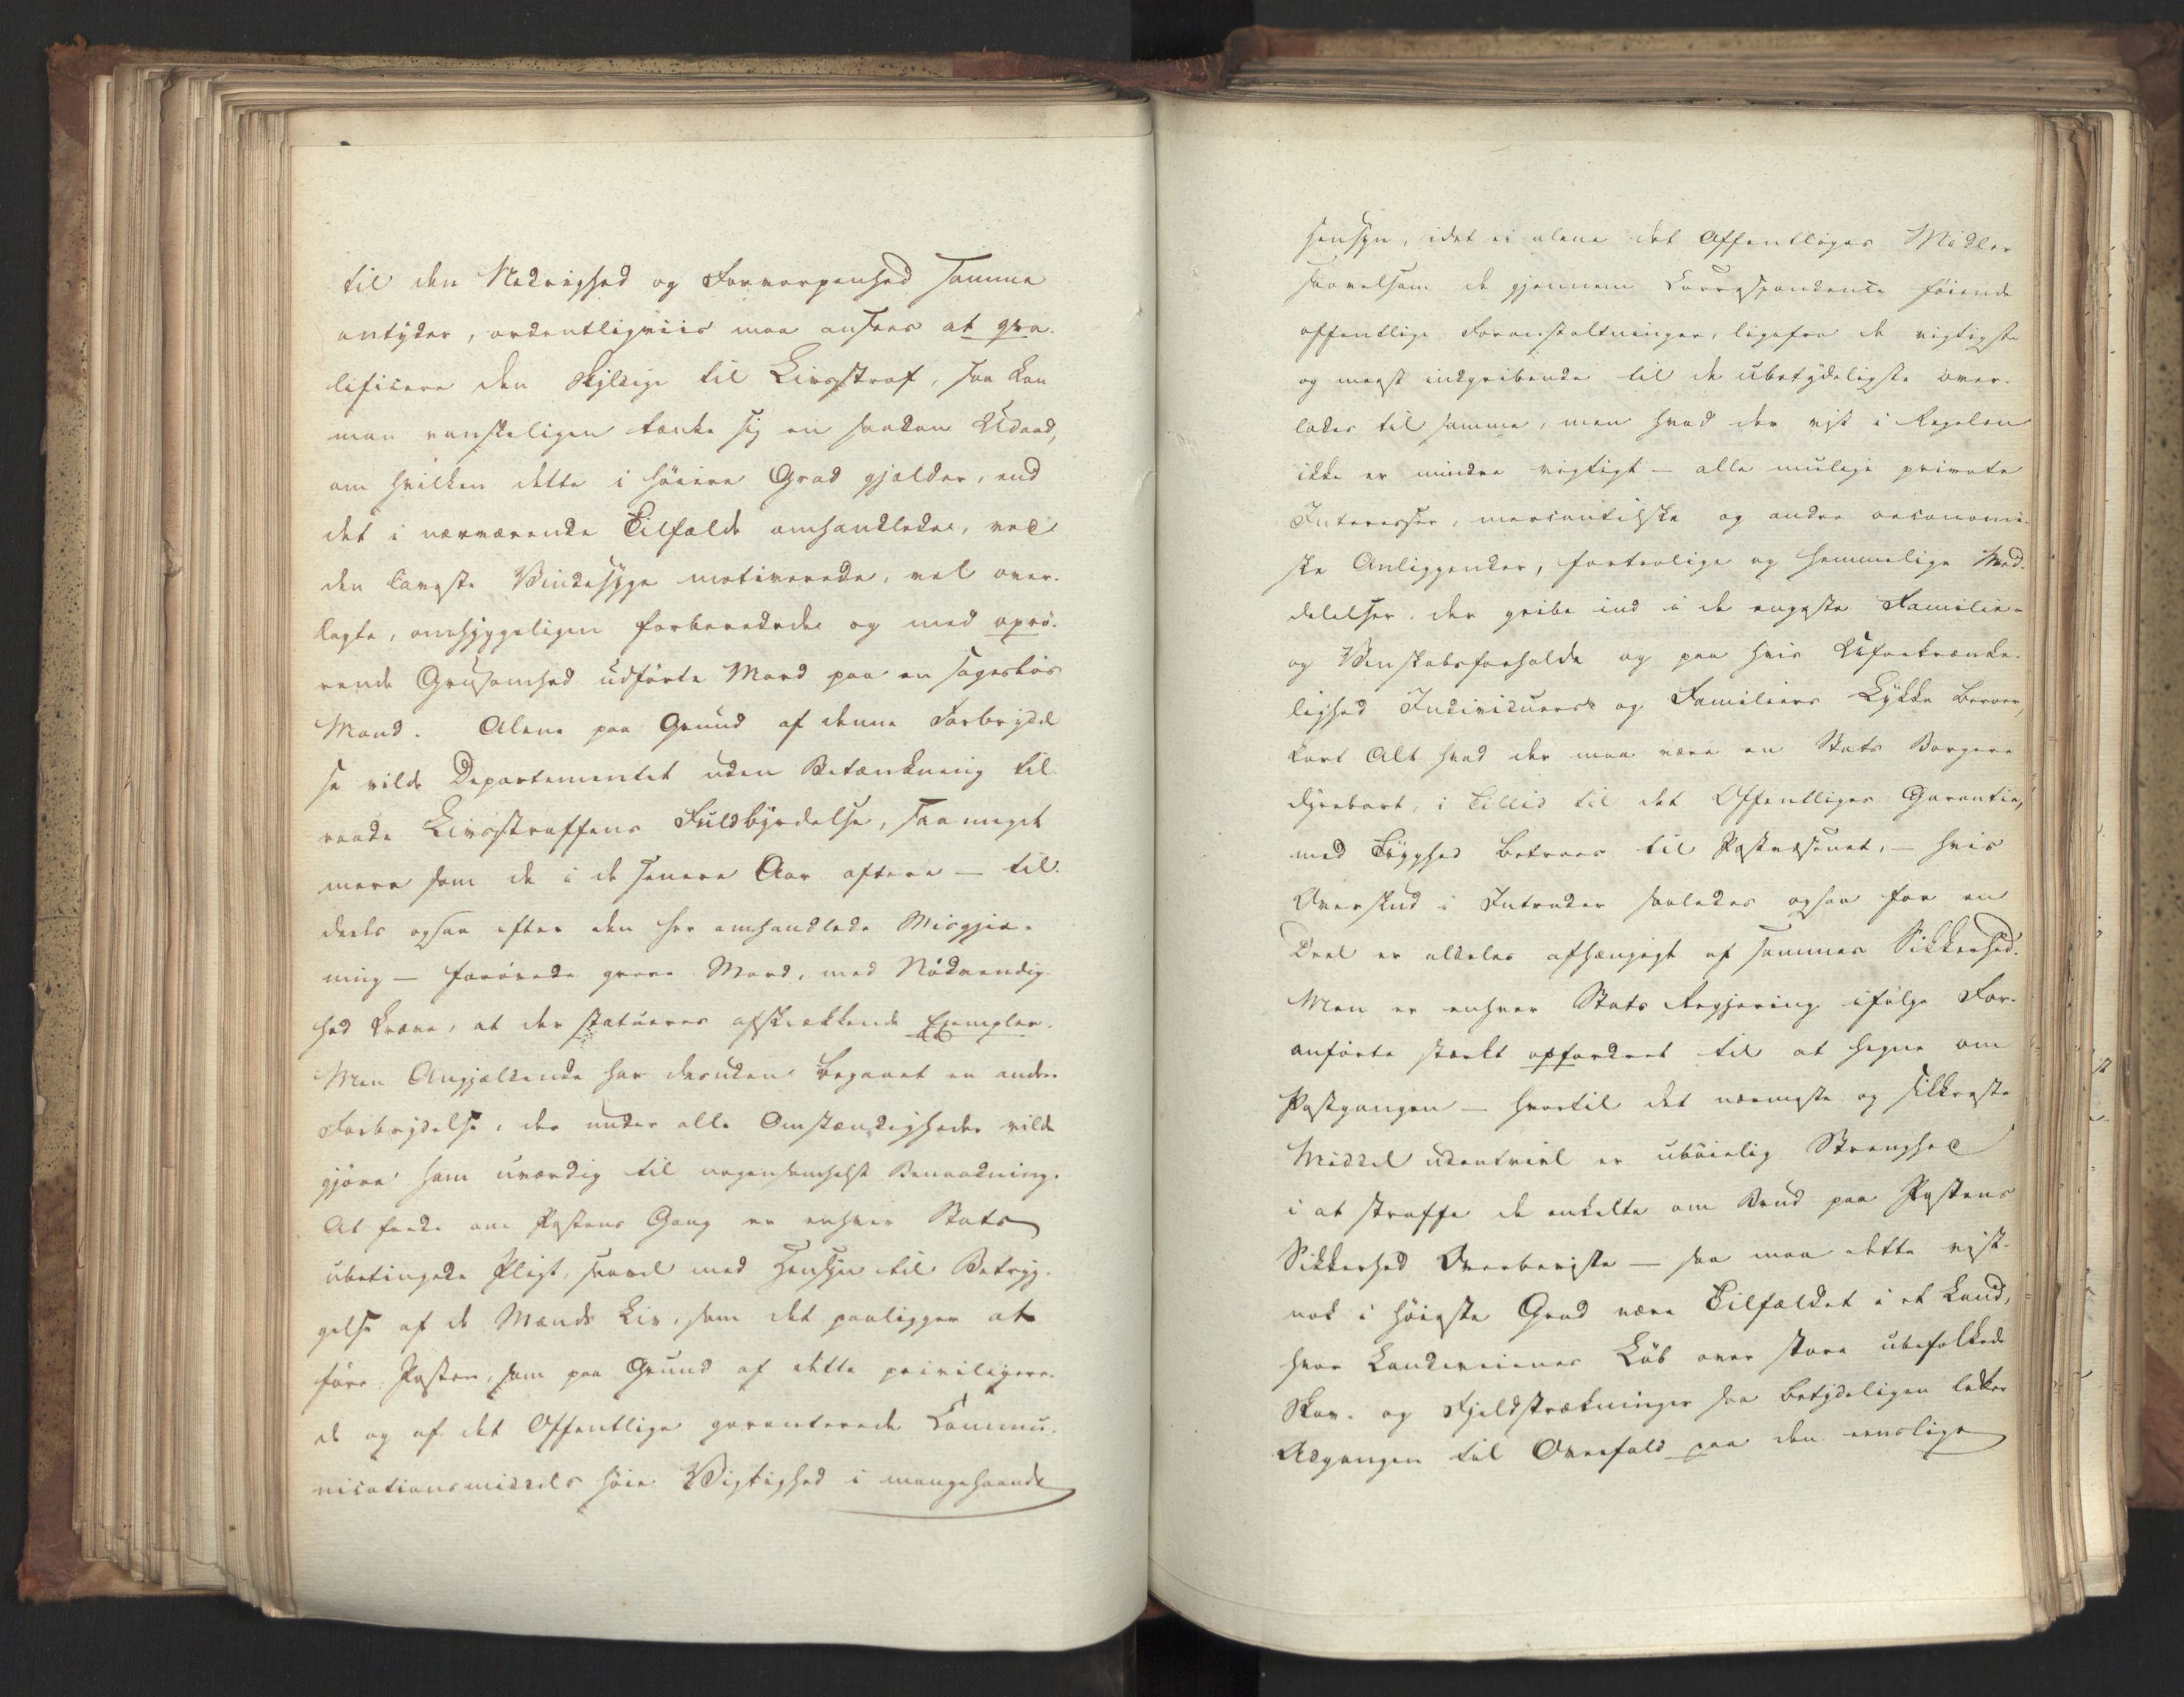 til den Nedrighed og Forvorpenhed samme
antyder, ordentligviis maa ansees at qva-
lificere den skyldige til Livsstraf, saa kan
man vanskeligen tænke sig en saadan Udaad,
om hvilken dette i høiere Grad gjælder, end
det i nærværende Tilfælde omhandlede, ved
den laveste Vindesyge motiverede, vel over-
lagte, omhyggeligen forberedede og med oprö-
rende Grusomhed udførte Mord paa en sagesløs
Mand. Alene paa Grund af denne Forbrydel
se vilde Departementet uden Betænkning til-
raade Livsstraffens Fuldbyrdelse, saameget
mere som de i de senere Aar oftere — til-
deels ogsaa efter den her omhandlede Misgjer-
ning — forøvede grove Mord, med Nødvendig-
hed kræve, at der statueres afskrækkende Exempler.
Men Angjældende har desuden begaaet en anden
Forbrydelse, der under alle Omstændigheder vilde
gjøre ham uværdig til nogensomhelst Benaadning.
At frede om Postens Gang er enhver Stats
ubetingede Pligt, saavel med Hensyn til Betryg-
gelse af de Mænds Liv, som det paaligger at
føre Posten, som paa Grund af dette priviligere-
de og af det Offentlige garanterede Commu-
nicationsmiddels høie Vigtighed i mangehaande
Hensyn, idet ei alene det Offentliges Midler
saavelsom de gjennem Correspondence føiende
offentlige Foranstaltninger, ligefra de vigtigste
og meest indgribende til de ubetydeligste over-
lades til samme, men hvad der vist i Regelen
ikke er mindre vigtigt — alle mulige private
Interesser, mercantilske og andre oeconomi-
ske Anliggender, fortrolige og hemmelige Med-
delelser, der gribe ind i de engeste Familie-
og Venskabsforholde og paa hvis Ukrænke-
lighed Individuers og Familiers Lykke beroer,
kort Alt hvad der maa være en Stats Borgere
dyrebart, i Tillid til det Offentliges Garantie,
med Tryghed betroes til Postvæsenet, — hvis
Overskud i Intrader saaledes ogsaa for en
Deel er aldeles afhængigt af sammes Sikkerhed.
Men er enhver Stats Regjering ifølge For-
anførte stærkt opfordret til at hegne om
Postgangen — hvortil det nærmeste og sikkreste
Middel udentvivl er ubøielig Strenghed
i at straffe de enkelte om Brud paa Postens
Sikkerhed Overbeviste — saa maa dette vist-
nok i høieste Grad være Tilfældet i et Land,
hvor Landeveienes Løb over store ubefolkede
Skov- og Fjeldstrækninger saa betydeligen letter
Adgangen til Overfald paa den eenslige